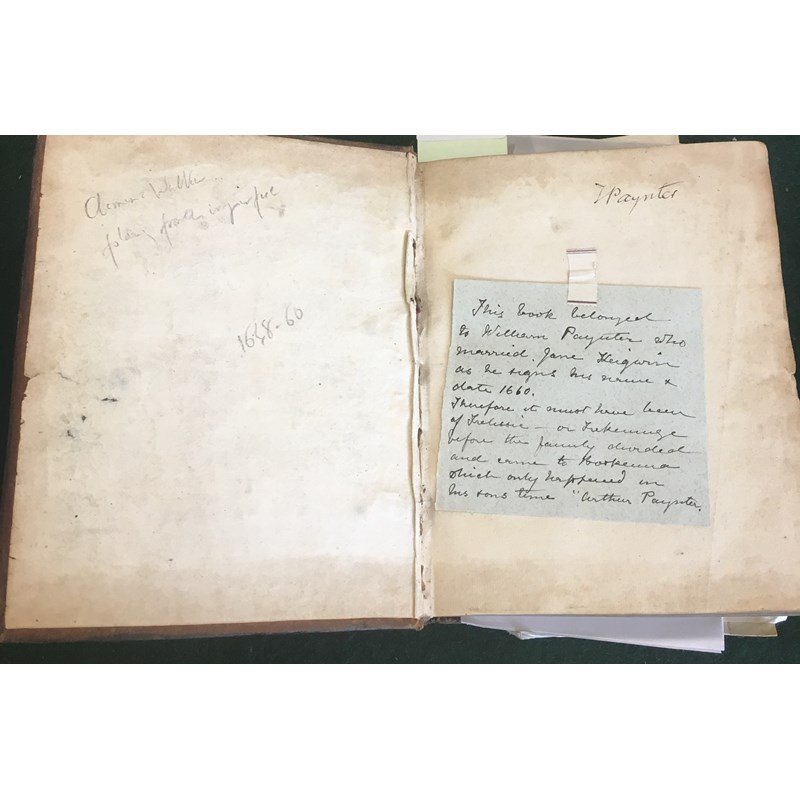 1648-60
T Paynter
This book belonged
to William Paynter who
married. Jane Keigwin
as he signs his name &
date 1660.
Therefore it must have been
of Trelissic - or Trekenning
before the family divided
and came to Boskenna
which only happened in
his sons time "Arthur Paynter.